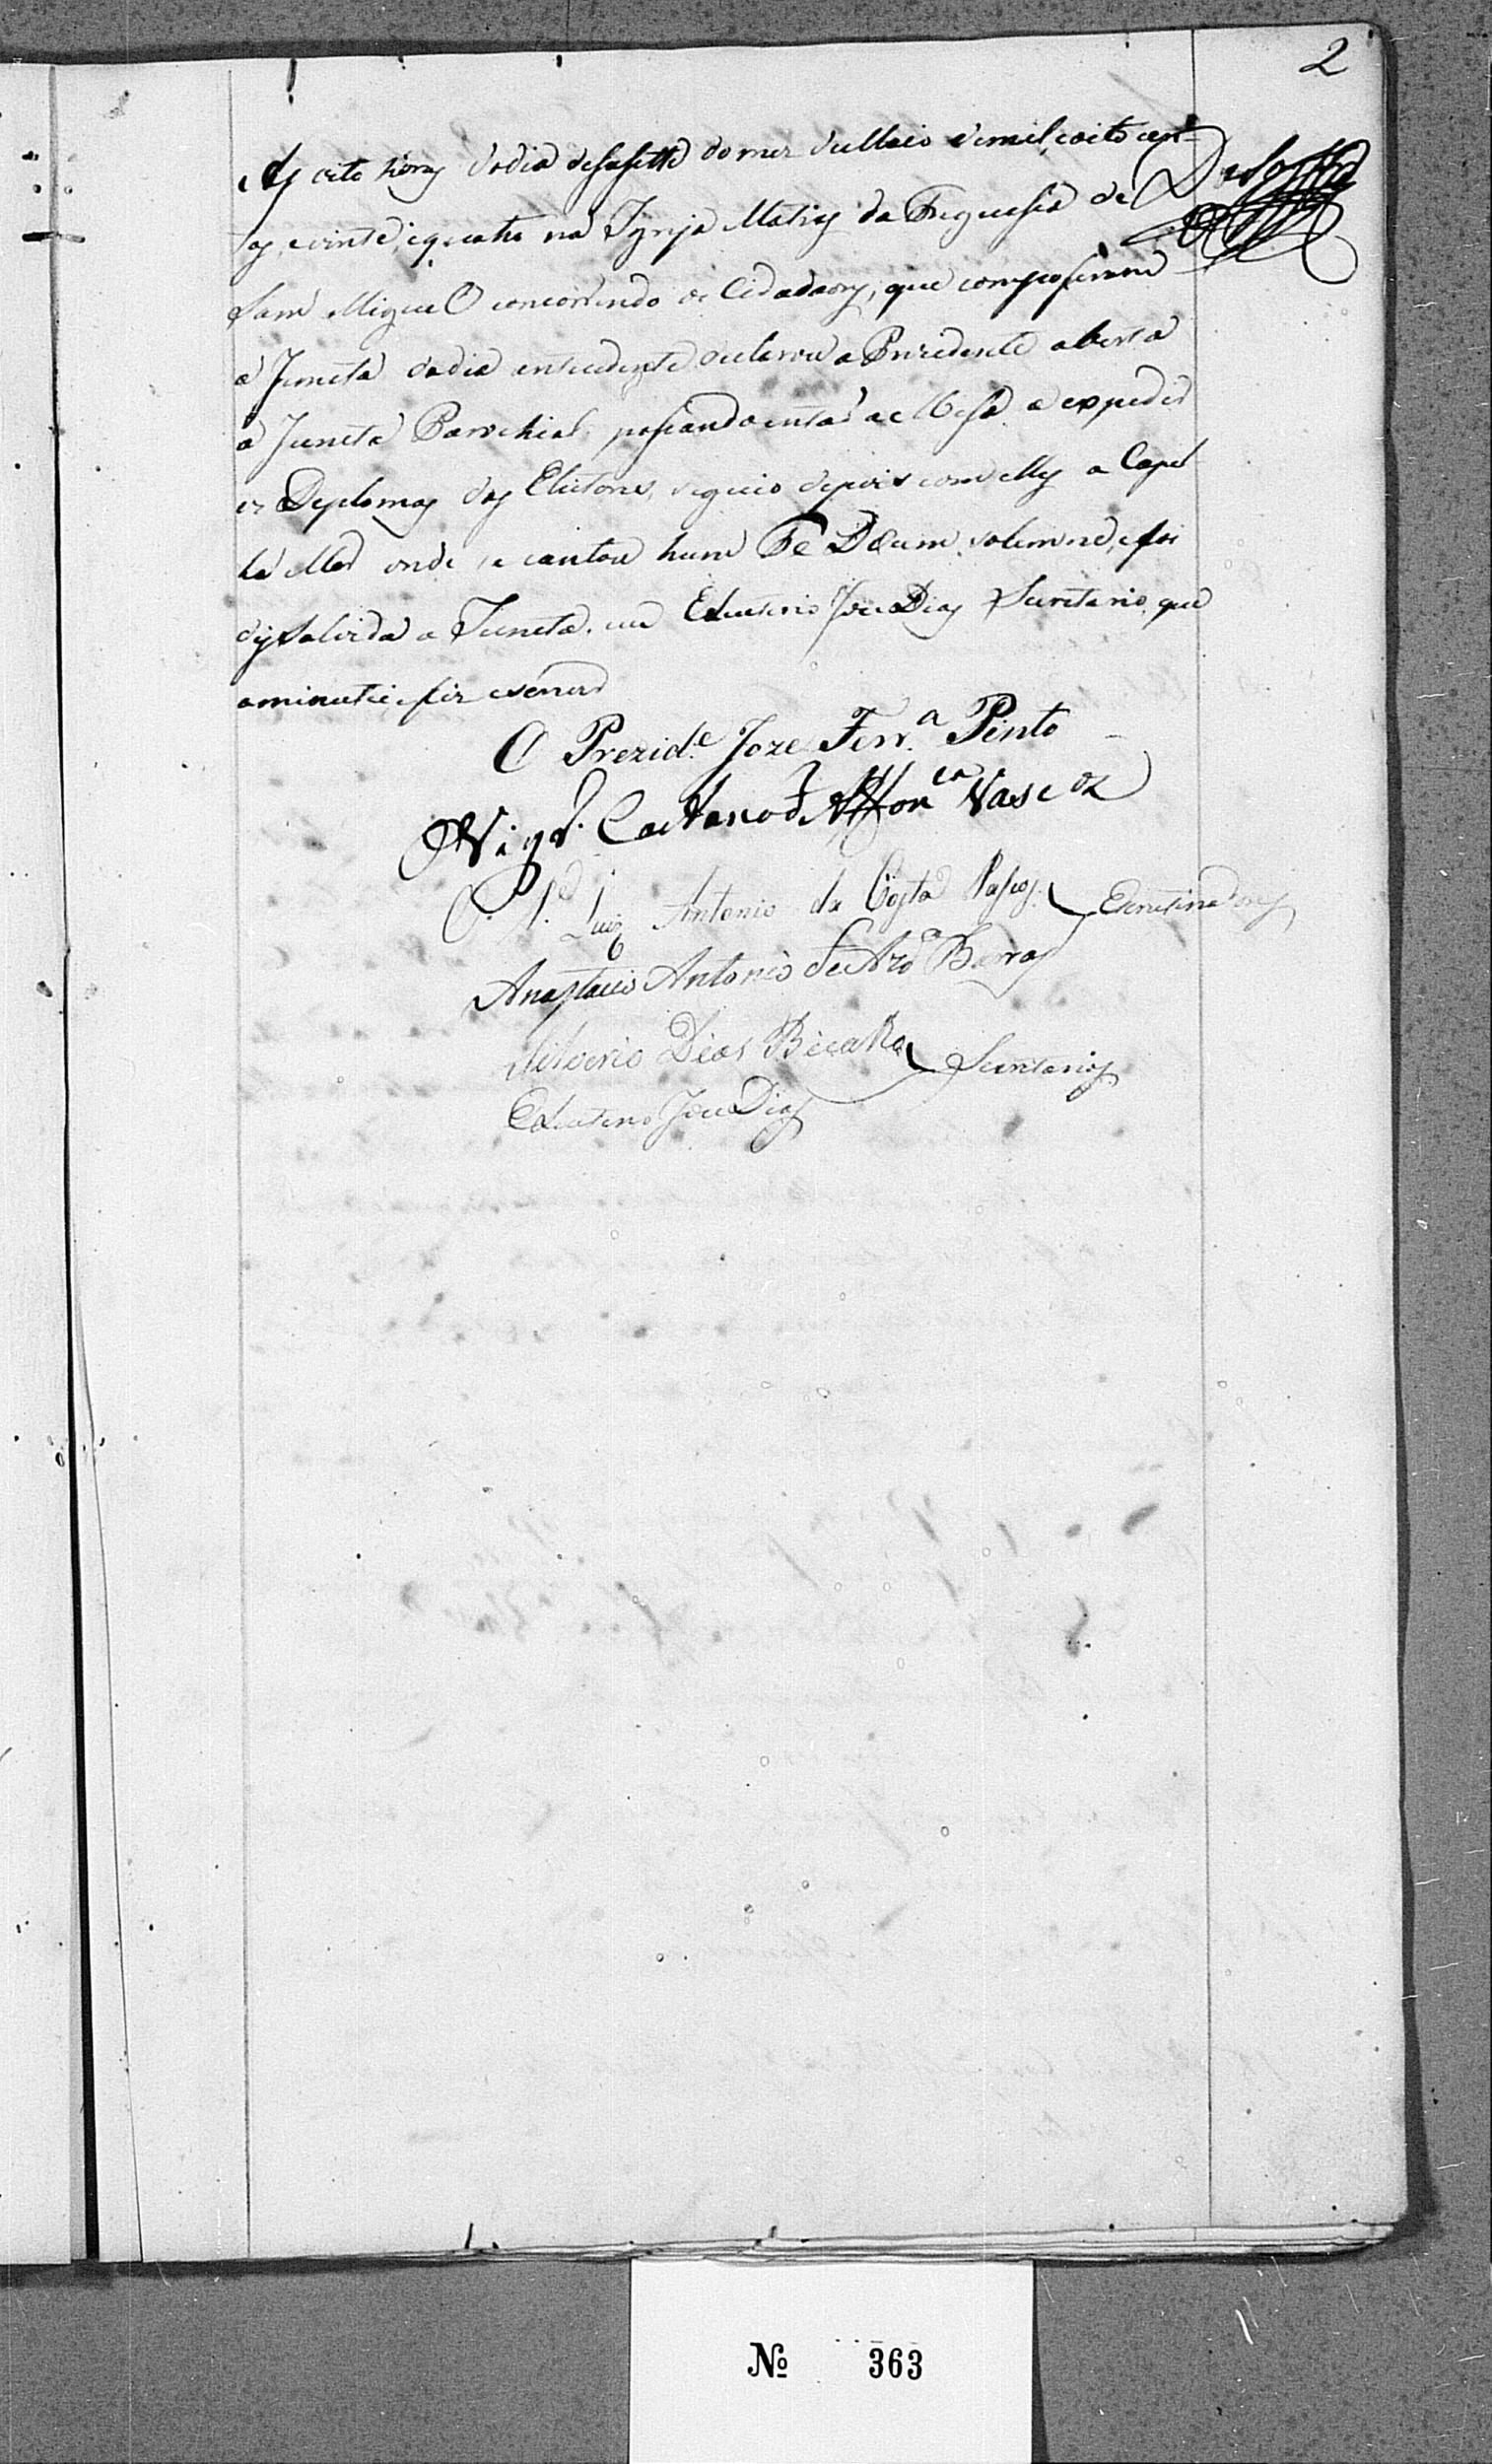 2
As oito horas do dia desasette do mez de Maio de mil, e oito cent-
os, e vinte, e quatro na Igreja Matris da Freguesia de
Sam Miguel concorrendo os Cidadaons, que composeram
a Juncta do dia antecedente declarou o Prezedente aberta
a Juncta Parochial, passando entaõ a Mesa a expedir
os Deplomas dos Elictores, seguio depois com elles a Capel
la Mor onde se cantou hum Te Deum solemne, e foi
disolvida a Juncta. eu Eleuterio Joze Dias Secretario, que
o minutei e fiz escrever
O Prezid.e Joze Ferr.a Pinto
O Vigr.o Caetano d Vasc
O P. Luiz Antonio da Costa Passos Escrutinadores
Anastacio Antonio de Az.o Barros
Silverio Dias Bicalho Secretarios
Eleuterio Joze Dias
No 363